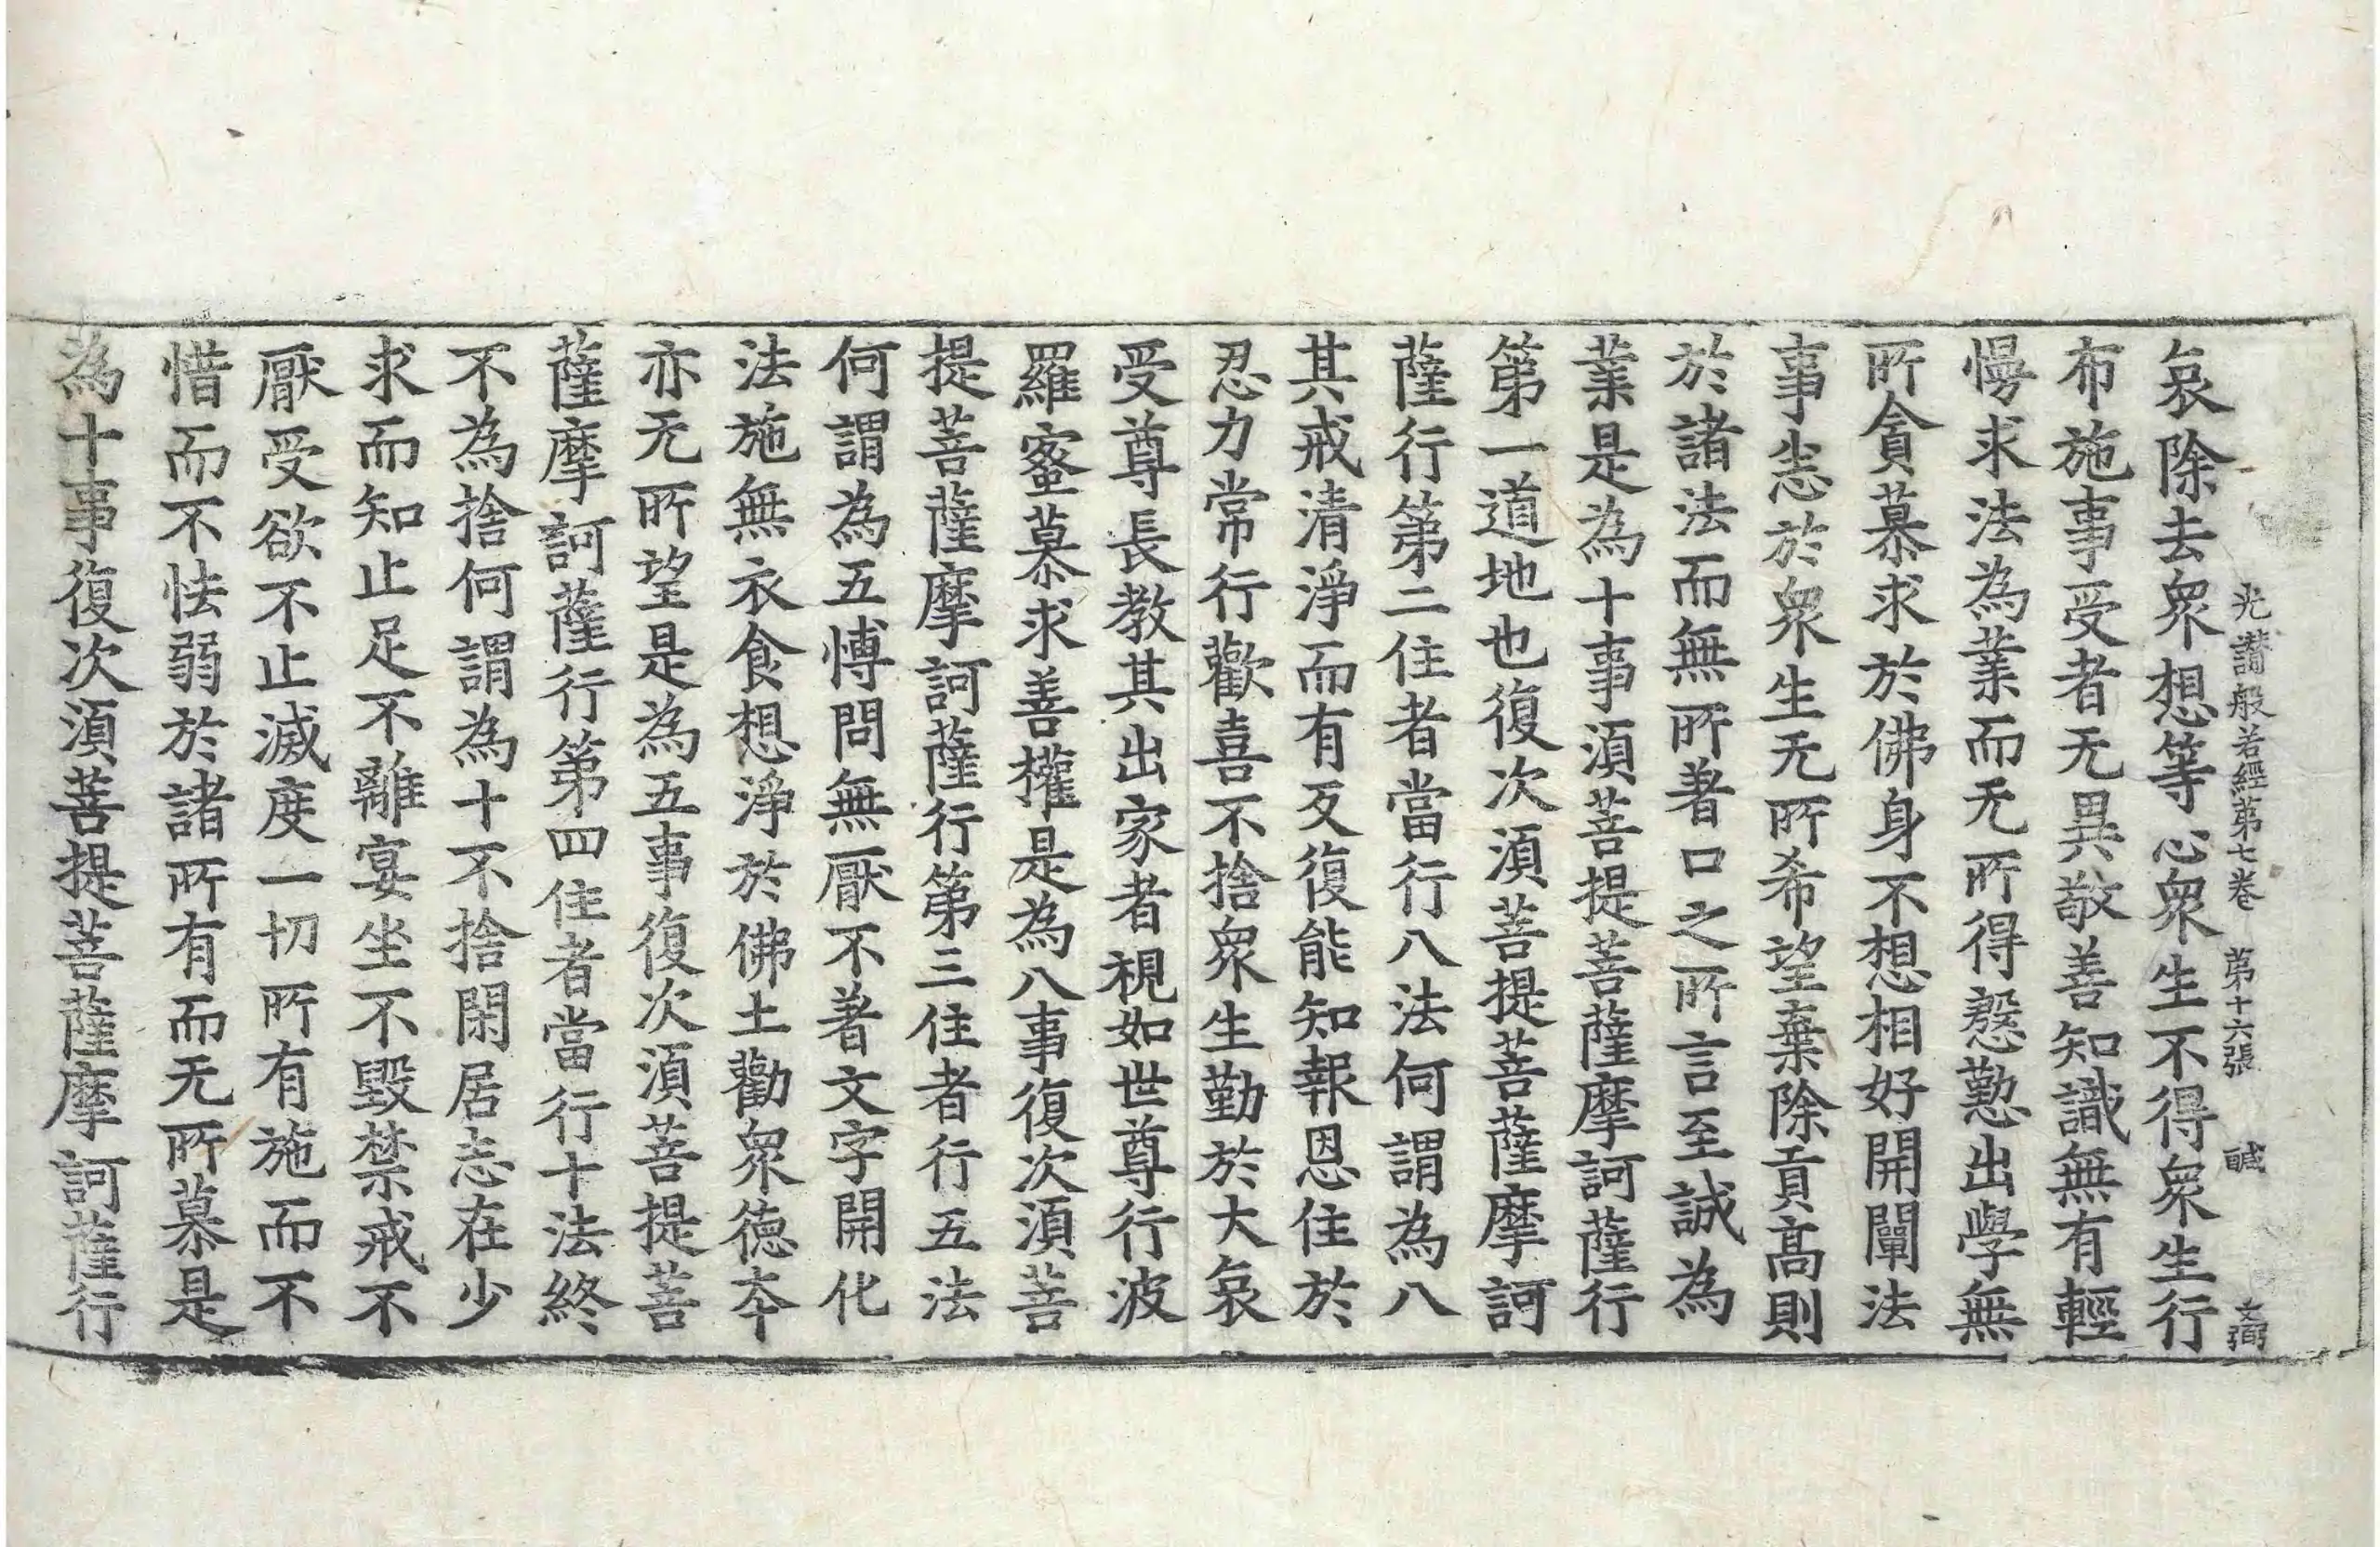 光讚般若經第七卷 第十六張 鹹 文弼
哀除去衆想等心衆生不得衆生行
布施事受者无異敬善知識無有輕
慢求法為業而无所得慇懃出學無
所貪慕求於佛身不想相好開闡法
事恙於衆生无所希望棄除貢高則
於諸法而無所著口之所言至誠為
業是為十事須菩提菩薩摩訶薩行
第一道地也復次須菩提菩薩摩訶
薩行第二住者當行八法何謂為八
其戒清淨而有反復能知報恩住於
忍力常行歡喜不捨衆生勤於大哀
受尊長教其出家者視如世尊行波
羅蜜慕求善權是為八事復次須菩
提菩薩摩訶薩行第三住者行五法
何謂為五博問無厭不著文字開化
法施無衣食想淨於佛土勸衆德夲
亦无所望是為五事復次須菩提菩
薩摩訶薩行第四住者當行十法終
不為捨何謂為十不捨閑居志在少
求而知止足不離宴坐不毀禁戒不
厭受欲不止滅度一切所有施而不
惜而不怯弱於諸所有而无所慕是
為十事復次須菩提菩薩摩訶薩行